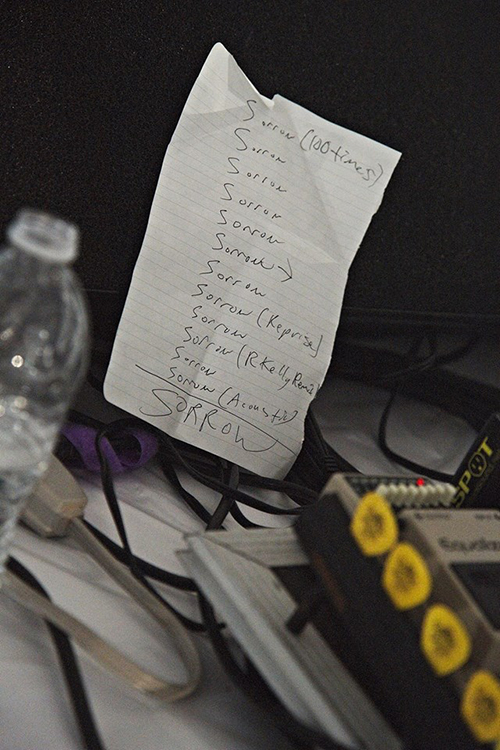 Sorrow (100 times)
Sorrow
Sorrow
Sorrow
Sorrow
Sorrow →
Sorrow
Sorrow (Reprise)
Sorrow
Sorrow (R Kelly Remix
Sorrow
Sorrow (Acoustic)
SORROW
SPOT